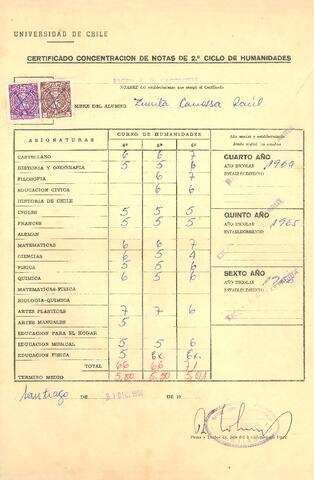 UNIVERSIDAD DE CHILE
CERTIFICADO CONCENTRACION DE NOTAS DE 2.º CICLO DE HUMANIDADES
NOMBRE del establecimiento que otorgó el Certificado
NOMBRE DEL ALUMNO Zurita Canessa Raúl
ASIGNATURAS CURSO DE HUMANIDADES Año escolar y establecimiento
4º 5º 6º donde realizó sus estudios
CASTELLANO 6 6 7
HISTORIA Y GEOGRAFIA 5 5 6
CUARTO AÑO
AÑO ESCOLAR 1964
ESTABLECIMIENTO
FILOSOFIA 6 7
EDUCACION CIVICA 6 6
HISTORIA DE CHILE
INGLES 5 5 5
FRANCES 5 5 5
QUINTO AÑO
AÑO ESCOLAR 1965
ESTABLECIMIENTO
ALEMAN
MATEMATICAS 6 6 7
CIENCIAS 6 5 4
FISICA 5 5 6
SEXTO AÑO
AÑO ESCOLAR 1966
ESTABLECIMIENTO
QUIMICA 6 5 6
MATEMATICAS-FISICA
BIOLOGIA-QUIMICA
ARTES PLASTICAS 7 7 6
ARTES MANUALES 5
EDUCACION PARA EL HOGAR
EDUCACION MUSICAL 5 5 6
EDUCACION FISICA 5 Ex. Ex.
TOTAL 66 66 71
TERMINO MEDIO 5,50 5,50 5,91
Santiago DE DIC. DE 19